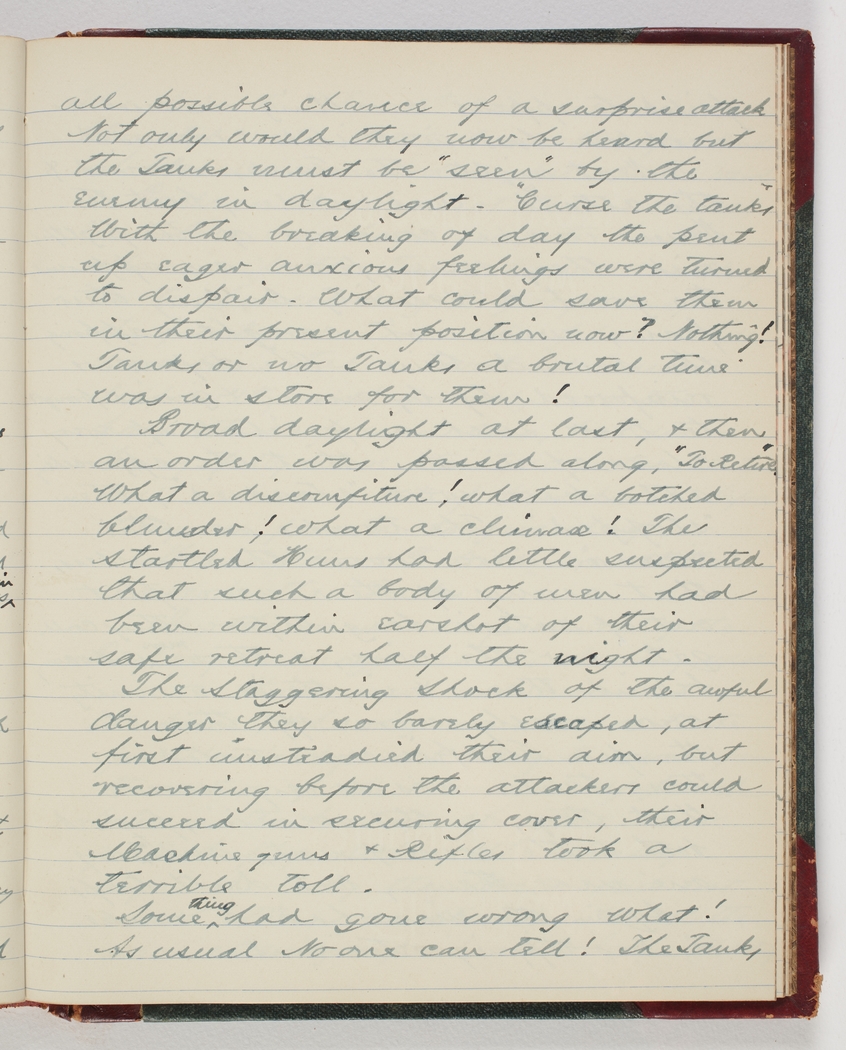 all possible chance of a surprise attack
Not only would they now be heard but
the Tanks must be "seen" by the
enemy in daylight - "Curse the tanks"
With the breaking of day the pent
up eager anxious feelings were turned
to dispair. What could save them
in their present position now? Nothing!
Tanks or no Tanks a brutal time
was in store for them!
Broad daylight at last, & then
an order was passed along, "To Retire".
What a discomfiture! what a botched
blunder! what a climax! The
startled Huns had little suspected
that such a body of men had
been within earshot of their
safe retreat half the night.
The staggering shock of the awful
danger they so barely escaped, at
first unsteadied their aim, but
recovering before the attackers could
succeed in securing cover, their
Machine guns & Rifles took a
terrible toll.
Something had gone wrong What!
As usual No one can tell! The Tanks